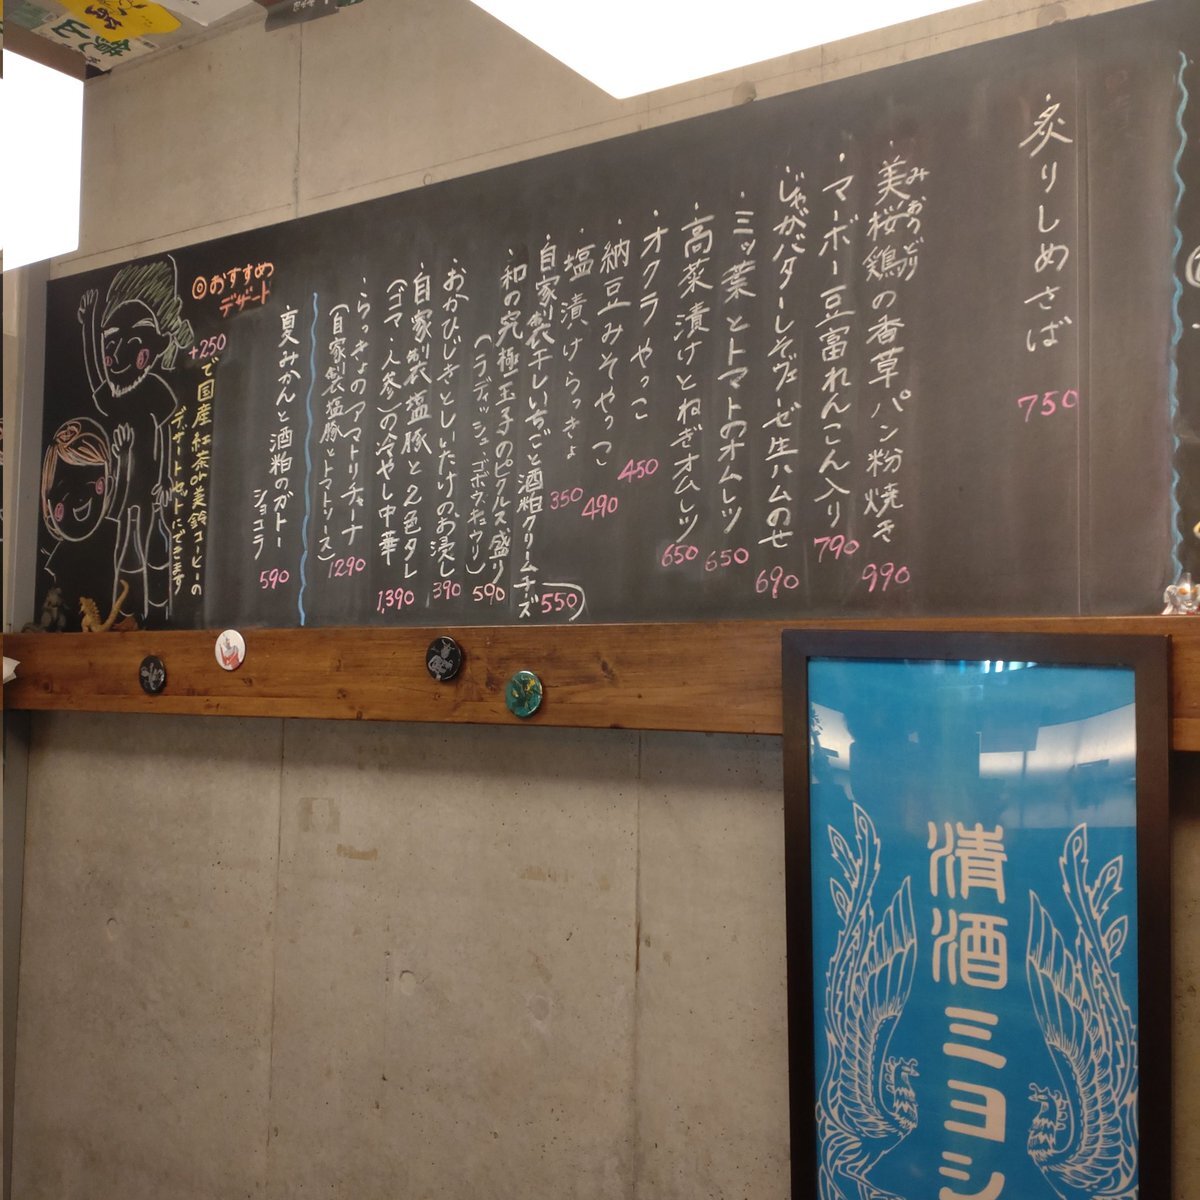 ・炙りしめさば
750
みおうどり
・美桜鶏の香草パン粉焼き
990
・マーボー豆富れんこん入り
790
・じゃがバターしそヴェーゼ生ハムのせ
690
・ミツ葉とトマトのオムレツ
650
・高菜漬けとねぎオムレツ
650
・オクラやっこ
450
・納豆みそやっこ
490
・塩漬けらっきょ
350
・自家製干しいちごと酒粕クリームチーズ
550
・和の究極玉子のピクルス盛り
(ラディッシュ、ゴボウ、キュウリ)
590
・おかひじきとしいたけのお浸し
390
・自家製塩豚と2色タレ
(ゴマ・人参)の冷やし中華
1,390
・らっきょのアマトリチャーナ
(自家製塩豚とトマトソース)
1290
◎おすすめ
デザート
・夏みかんと酒粕のガトー
ショコラ
590
+250で国産紅茶or美鈴コーヒーの
デザートセットにできます
清酒ミヨシ